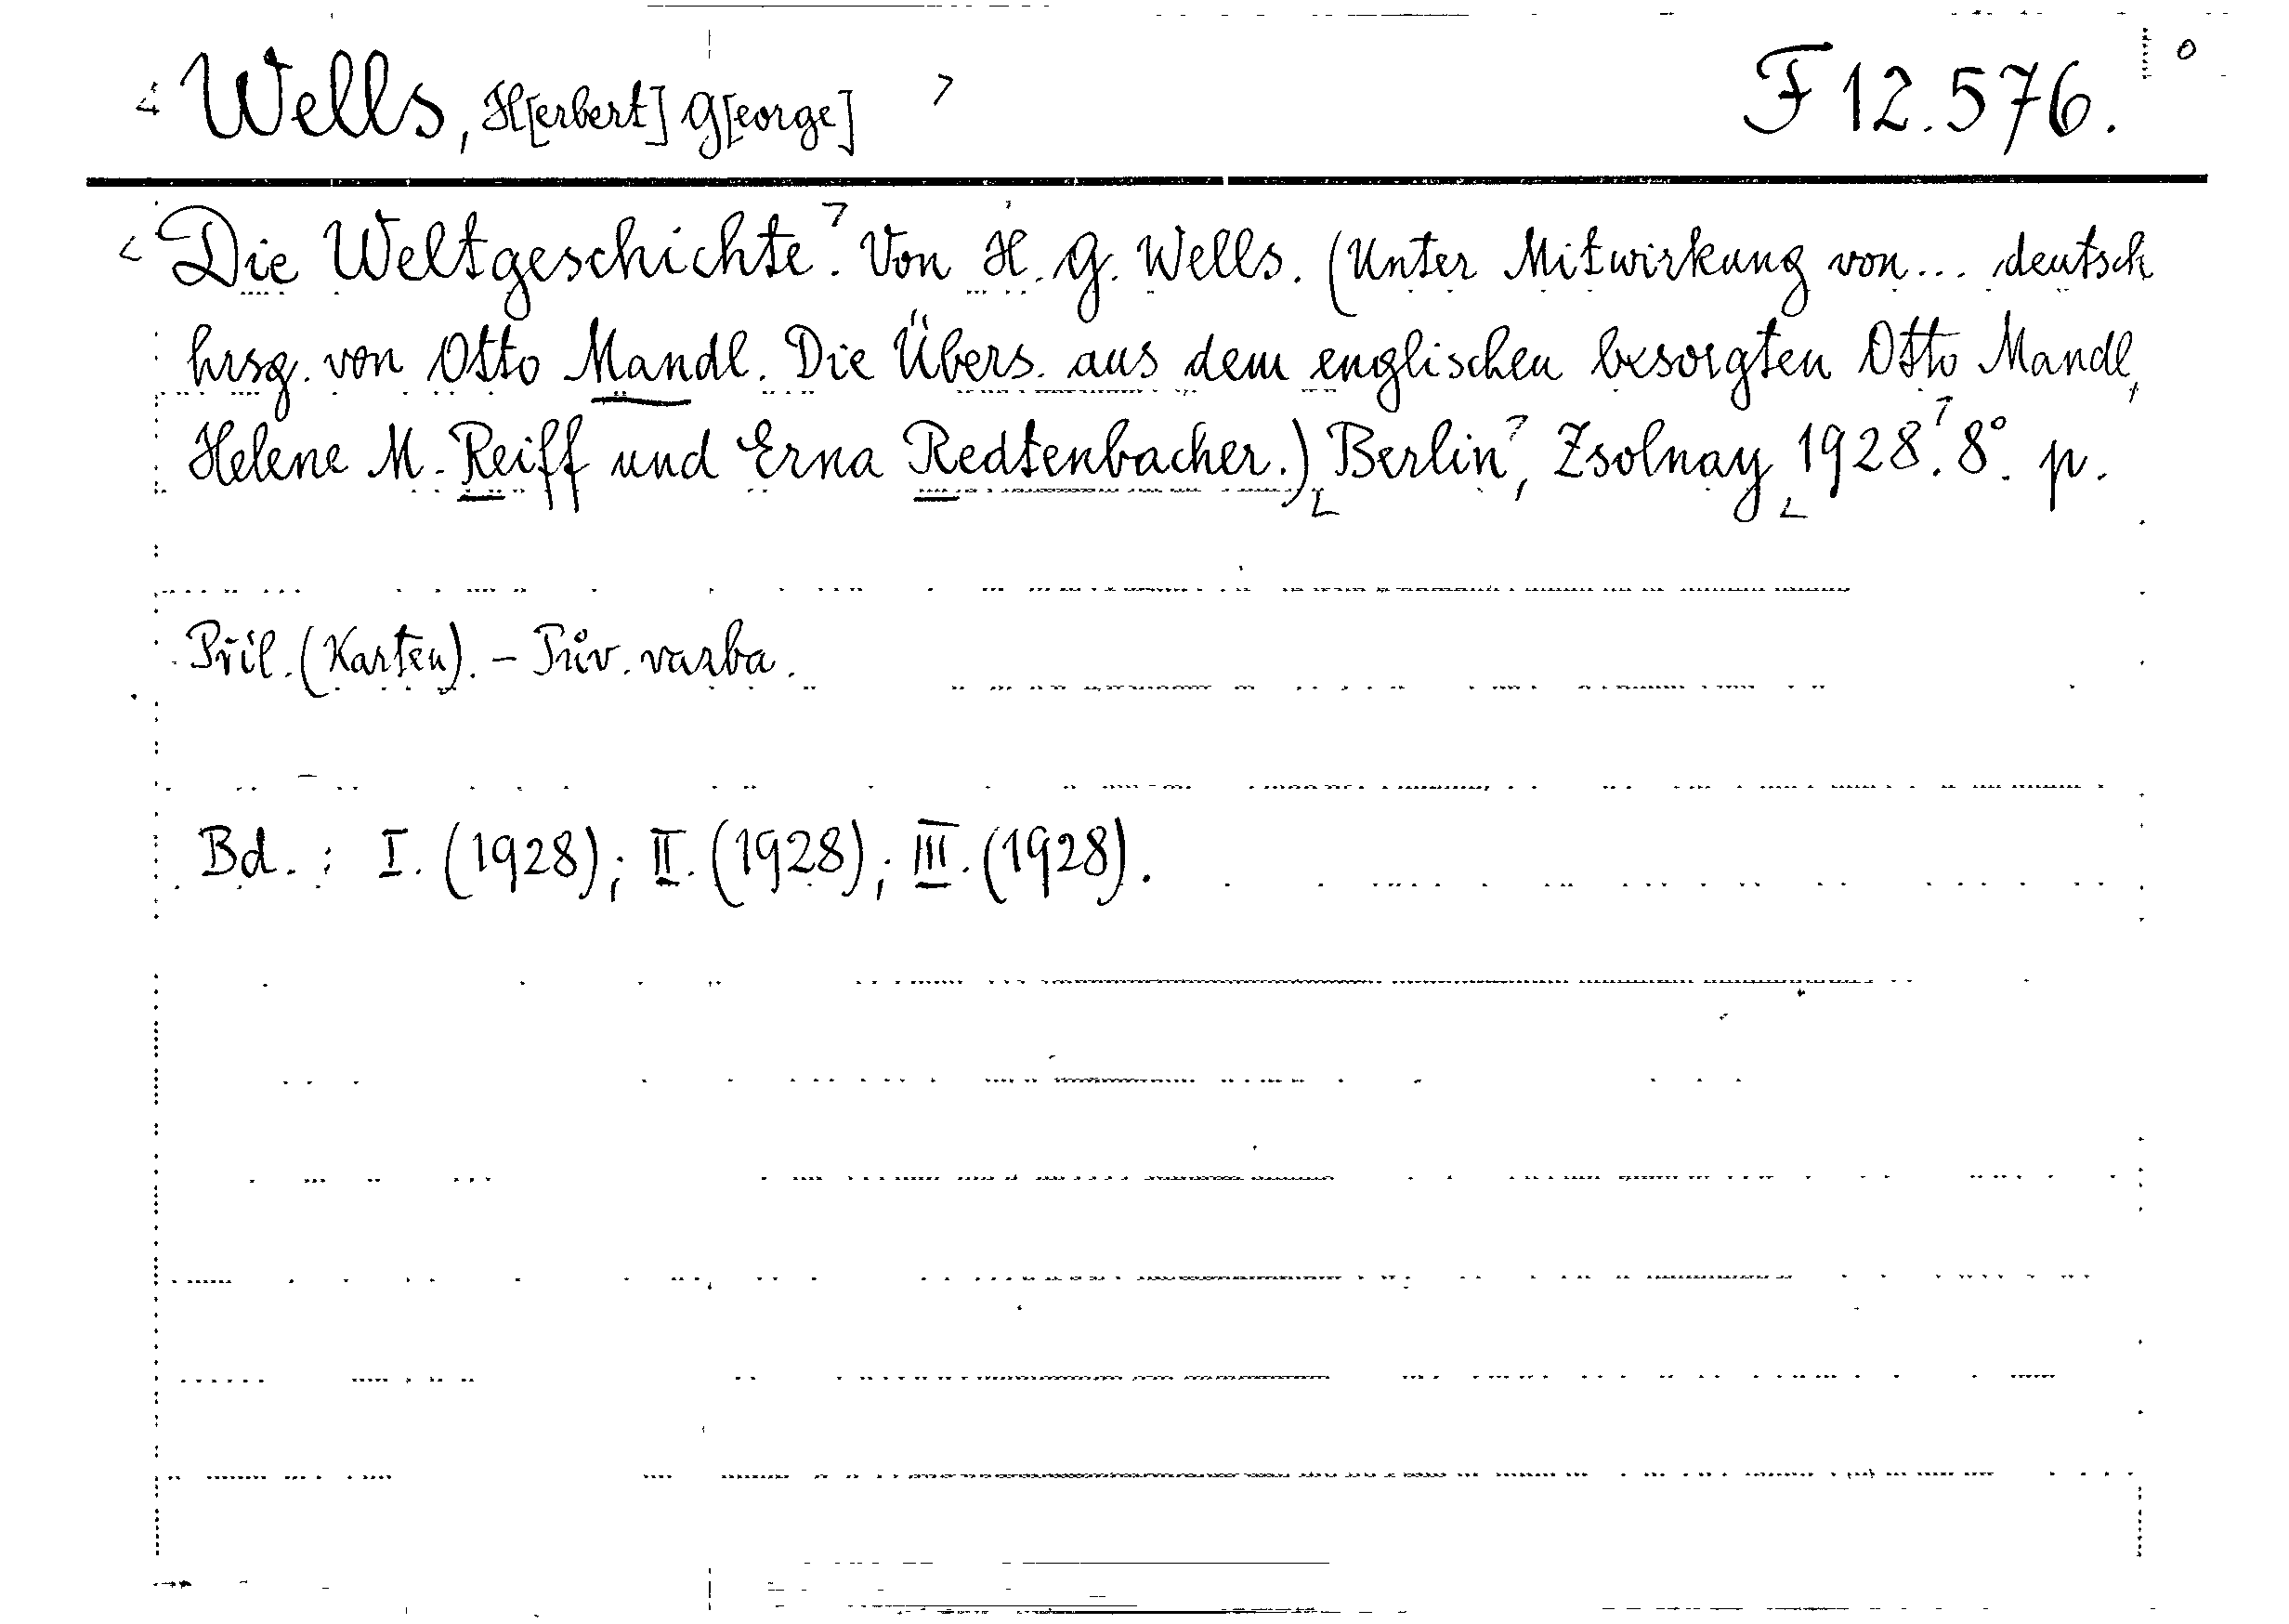 < Wells, H[erbert] G[eorge] > F 12.576.
< Die Weltgeschichte.> Von H. G. Wells. (Unter Mitwirkung von... deutsch
hrsg. von Otto Mandl. Die Übers. aus dem englischen besorgten Otto Mandl,
Helene M. Reiff und Erna Redtenbacher.) < Berlin >, Zsolnay < 1928.> 8°. p.
Příl. (Karten). – Pův. vazba.
Bd. : I. (1928); II. (1928); III. (1928).